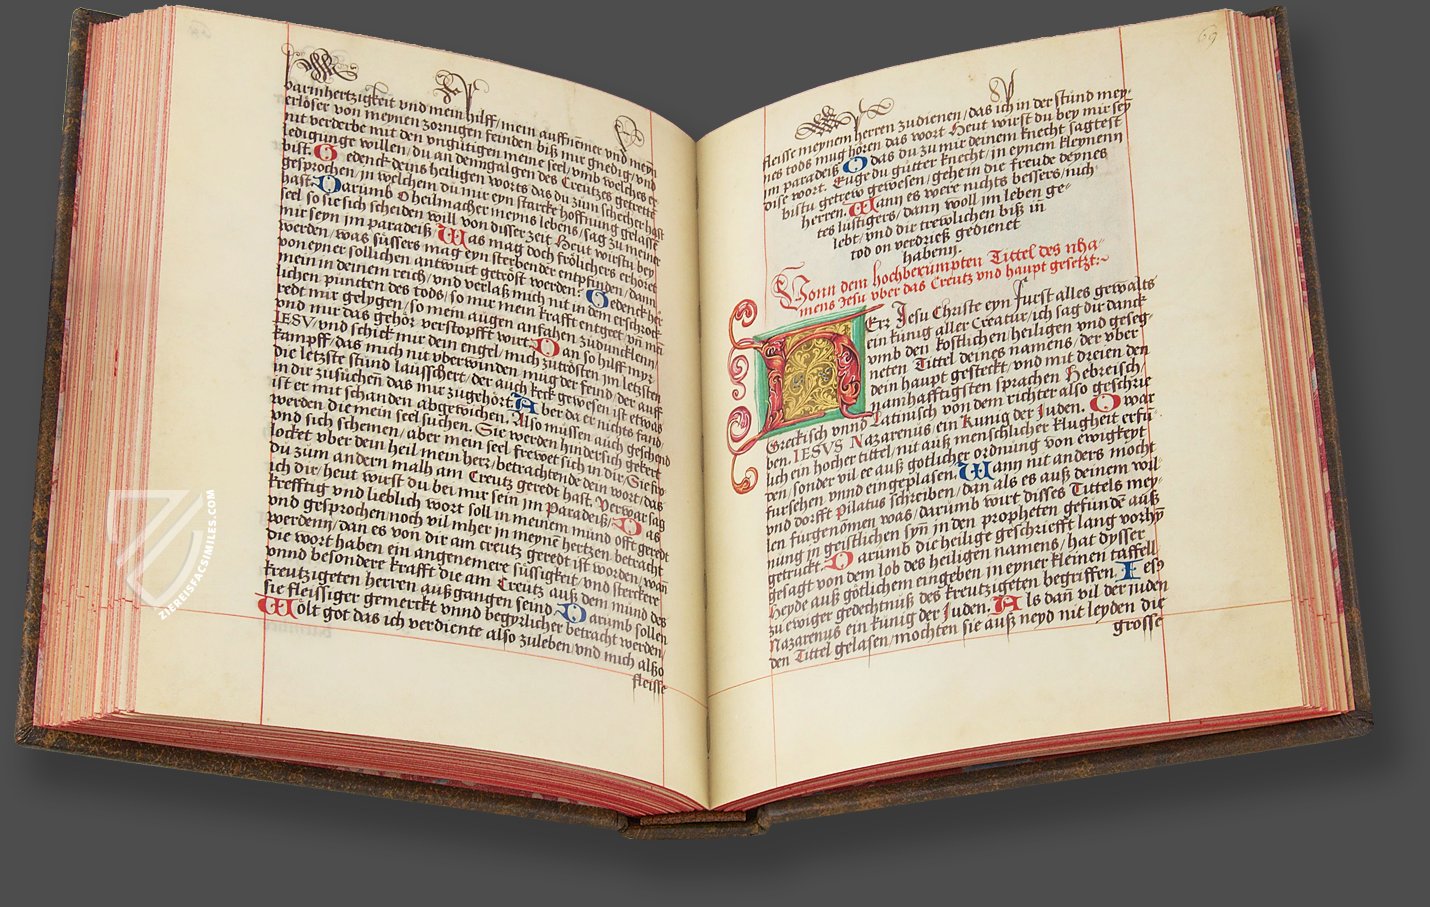 barmhertzigkeit vnd mein hilff/mein auffnemer vnd meyn
erlöser von meynen zornigen feinden biß mir gnedig/vnd
nit verderbe mit den vngütigen meine seel/vmb welches er-
ledigunge willen/du an dem galgen des Creutzes getötte
bist. Gedenck deins heiligen worts das du zům schecher hast
gesprochen/in welchem du mir eyn starcke hoffnung gelassē
hast. Darumb O heilmacher meyns lebens/sag zu meiner
seel so sie sich scheiden will von disser zeit. Heut wirstu bey
mir seyn im paradeiß Was mag doch frölichers erhöret
werden/was süssers mag eyn sterbender entpfinden/dann
von eyner sollichen antwurt getröst werden. Gedenck her
mein in deinem reich/vnd verlaß mich nit in dem erschrock-
lichen puncten des tods/so mir mein krafft entgeet vn̄ mir
redt mir gelygen/so mein augen anfahen zůduncklenn/
vnd mir das gehör verstopfft wirt. Dan so hilff myr
IESV/vnd schick mir dem engel/mich zůtrösten im letzsten
kampff/das mich nit vberwinden mug der feind/der auff
die letzste stund laüsschert/der auch keck gewesen ist etwas
in dir zusůchen das mir zugehört. Aber da er nichts fand/
ist er mit schanden abgewichen. Also müssen auch geschend
werden die mein seel suchen. Sie werden hindersich gekert
vnd sich schemen/aber mein seel frewet sich in dir/Sie fro-
locket vber dem heil mein hertz/betrachtende dein wort/das
du zům andern malh am Creutz geredt hast. Verwar sag
ich dir/heut wirst du bei mir sein jm paradeiß/ Das
krefftig vnd lieblich wort soll in meinem mund offt geredt
vnd gesprochen/noch vil mher in meynē hertzen betracht
werdenn/dan es von dir am creutz geredt ist worden/wan̄
die wort haben ein angenemere süssigkeit/vnd sterckere
vnnd besondere krafft die am Creutz auß dem mund des
kreutzigeten herren außgangen seind. Darumb sollen
sie fleissiger gemerckt vnnd begyrlicher betracht werden/
Wölt got das ich verdiente also zuleben/vnd mich alßo
fleisse
69
fleisse meynem herren zudienen/das ich in der stund mey-
nes tods mug hören das wort Heut wirst du bey mir sey
jm paradeiß O das du zu mir deinem knecht sagtest
dise wort. Euge du gütter knecht/in eynem kleynenn
bistu getrew gewesen/gehe in die freude deynes
herren. Wann es were nichts bessers/nich-
tes lustigers/dann woll im leben ge-
lebt/vnd dir trewlichen biß in̄
tod on verdrieß gedienet
habenn.
Vonn dem hochberumpten Tittel des nha-
mens Jesu vber das Creutz vnd haupt gesetzt:~
HErr Jesu Christe eyn fürst alles gewalts
ein künig aller Creatur/ich sag dir danck
vmb den kostlichen/heiligen vnd geseg-
neten Tittel deines namens/der vber
dein haupt gesteckt/vnd mit dreien den
nanrhafftigsten sprachen Hebreisch
Greckisch vnnd Latinisch von dem richter also geschrie
ben. IESVS Nazarenus ein Kunig der Juden. O war
lich ein hocher tittel/nit auß menschlicher klugheit erfu-
den/sonder vil ee auß gotlicher ordnung von ewigkeyt
fursehen vnnd eingeplasen. Wann nit anders mocht
vnd dorfft Pilatus schreiben/dan als es auß deinem wil
len fürgenōmen was/darumb wirt disses Tittels mey-
nung jn geistlichen syn̄ jn den propheten gefundē auß
getruckt. Darumb die heilige geschriefft lang vorhyn̄
gesagt von dem lob des heiligen namens/hat dysser
Heyde auß götlichem eingeben jn eyner kleinen taffell
zu ewiger gedechtnüß des kreutzigeten begriffen. Iesꝰ
Nazarenus ein kunig der Juden. Als dan̄ vil der juden
den Tittel gelasen/mochten sie auß neyd nit leyden die
grosse
ZIEREISFACSIMILES.COM